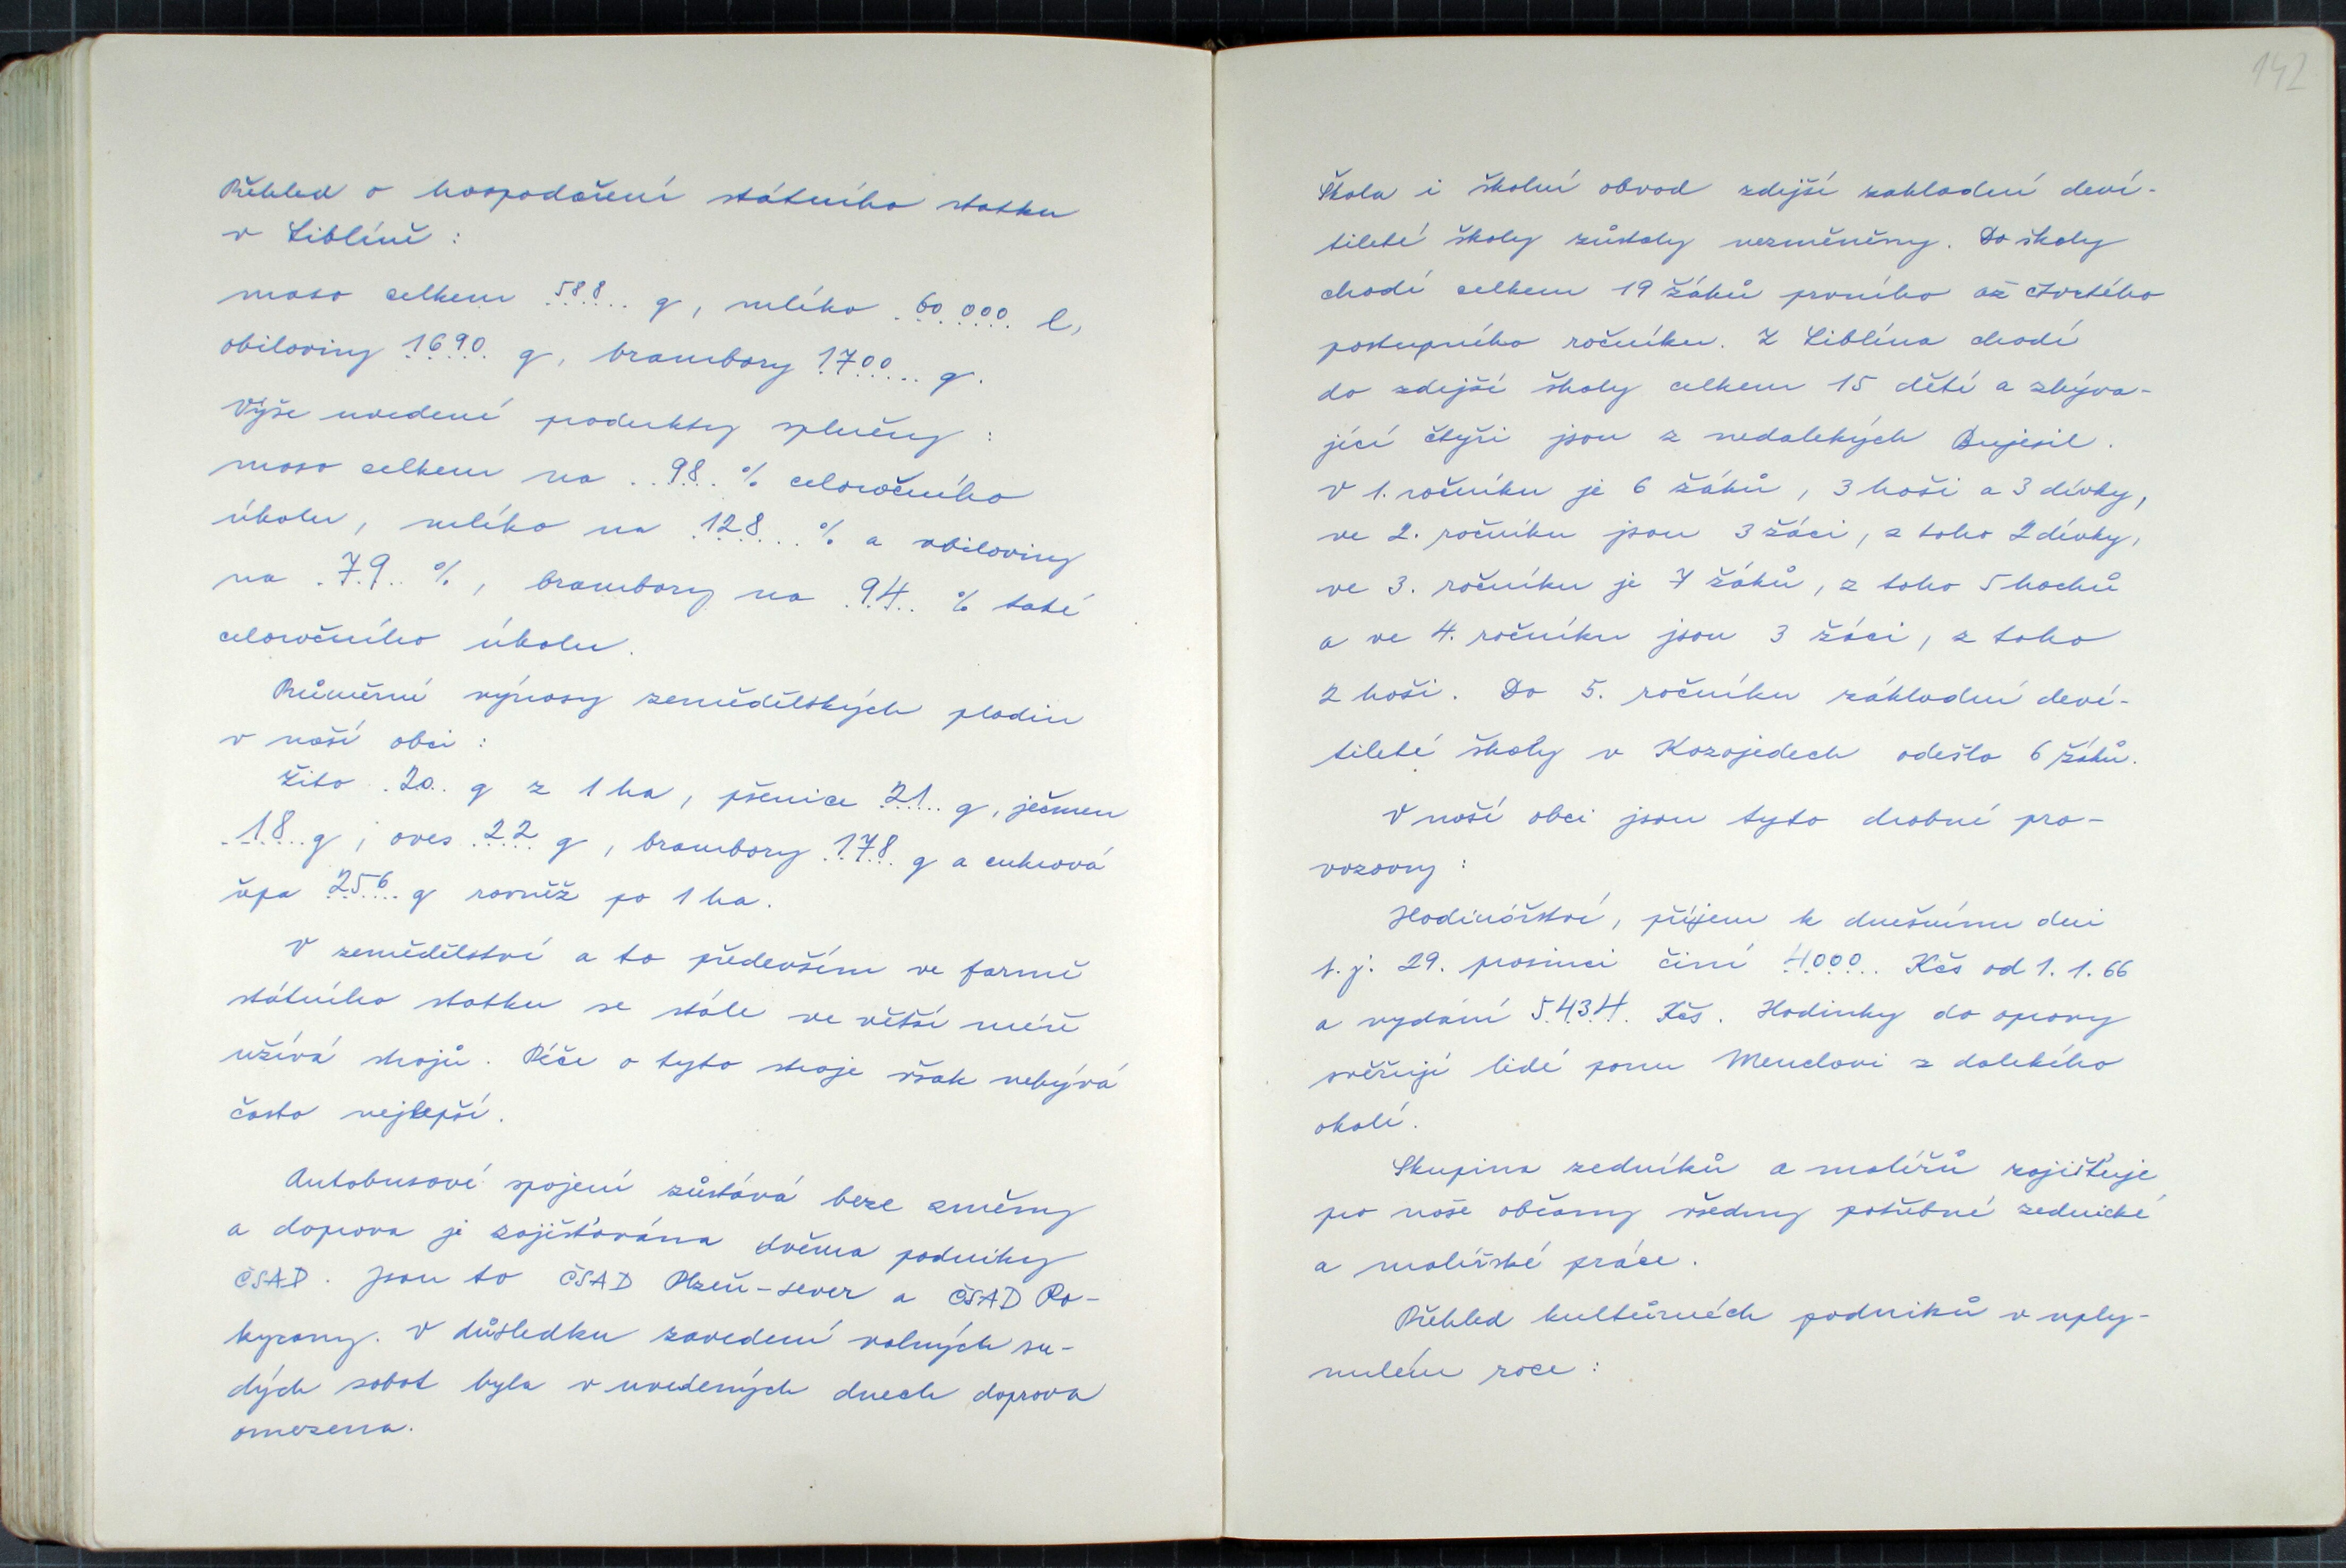 Přehled o hospodaření státního statku
v Liblíně :
maso celkem 588 q, mléko 60 000 l,
obiloviny 1690 q, brambory 1700 q.
Výše uvedené produkty splněny :
maso celkem na 98 % celoročního
úkolu, mléko na 128 % a obiloviny
na 79 %, brambory na 94 % také
celoročního úkolu.
Průměrné výnosy zemědělských plodin
v naší obci :
žito 20 q z 1 ha, pšenice 21 q, ječmen
18 q, oves 22 q, brambory 178 q a cukrová
řepa 256 q rovněž po 1 ha.
V zemědělství a to především ve farmě
státního statku se stále ve větší míře
užívá strojů. Péče o tyto stroje však nebývá
často nejlepší.
Autobusové spojení zůstává beze změny
a doprava je zajišťována dvěma podniky
ČSAD. Jsou to ČSAD Plzeň-sever a ČSAD Ro-
kycany. V důsledku zavedení volných su-
dých sobot byla v uvedených dnech doprava
omezena.
142
Škola i školní obvod zdejší zakladní deví-
tileté školy zůstaly nezměněny. Do školy
chodí celkem 19 žáků prvního až čtvrtého
postupného ročníku. Z Liblína chodí
do zdejší školy celkem 15 dětí a zbýva-
jící čtyři jsou z nedalekých Bujesil.
V 1. ročníku je 6 žáků, 3 hoši a 3 dívky,
ve 2. ročníku jsou 3 žáci, z toho 2 dívky,
ve 3. ročníku je 7 žáků, z toho 5 hochů
a ve 4. ročníku jsou 3 žáci, z toho
2 hoši. Do 5. ročníku základní deví-
tileté školy v Kozojedech odešlo 6 žáků.
V naší obci jsou tyto drobné pro-
vozovny :
Hodinářství, příjem k dnešnímu dni
t. j. 29. prosinci činí 4000 Kčs od 1. 1. 66
a vydání 5434 Kčs. Hodinky do opravy
svěřují lidé panu Menclovi z dalekého
okolí.
Skupina zedníků a malířů zajišťuje
pro naše občany všedny potřebné zednické
a malířské práce.
Přehled kultůrních podniků v uply-
nulém roce :